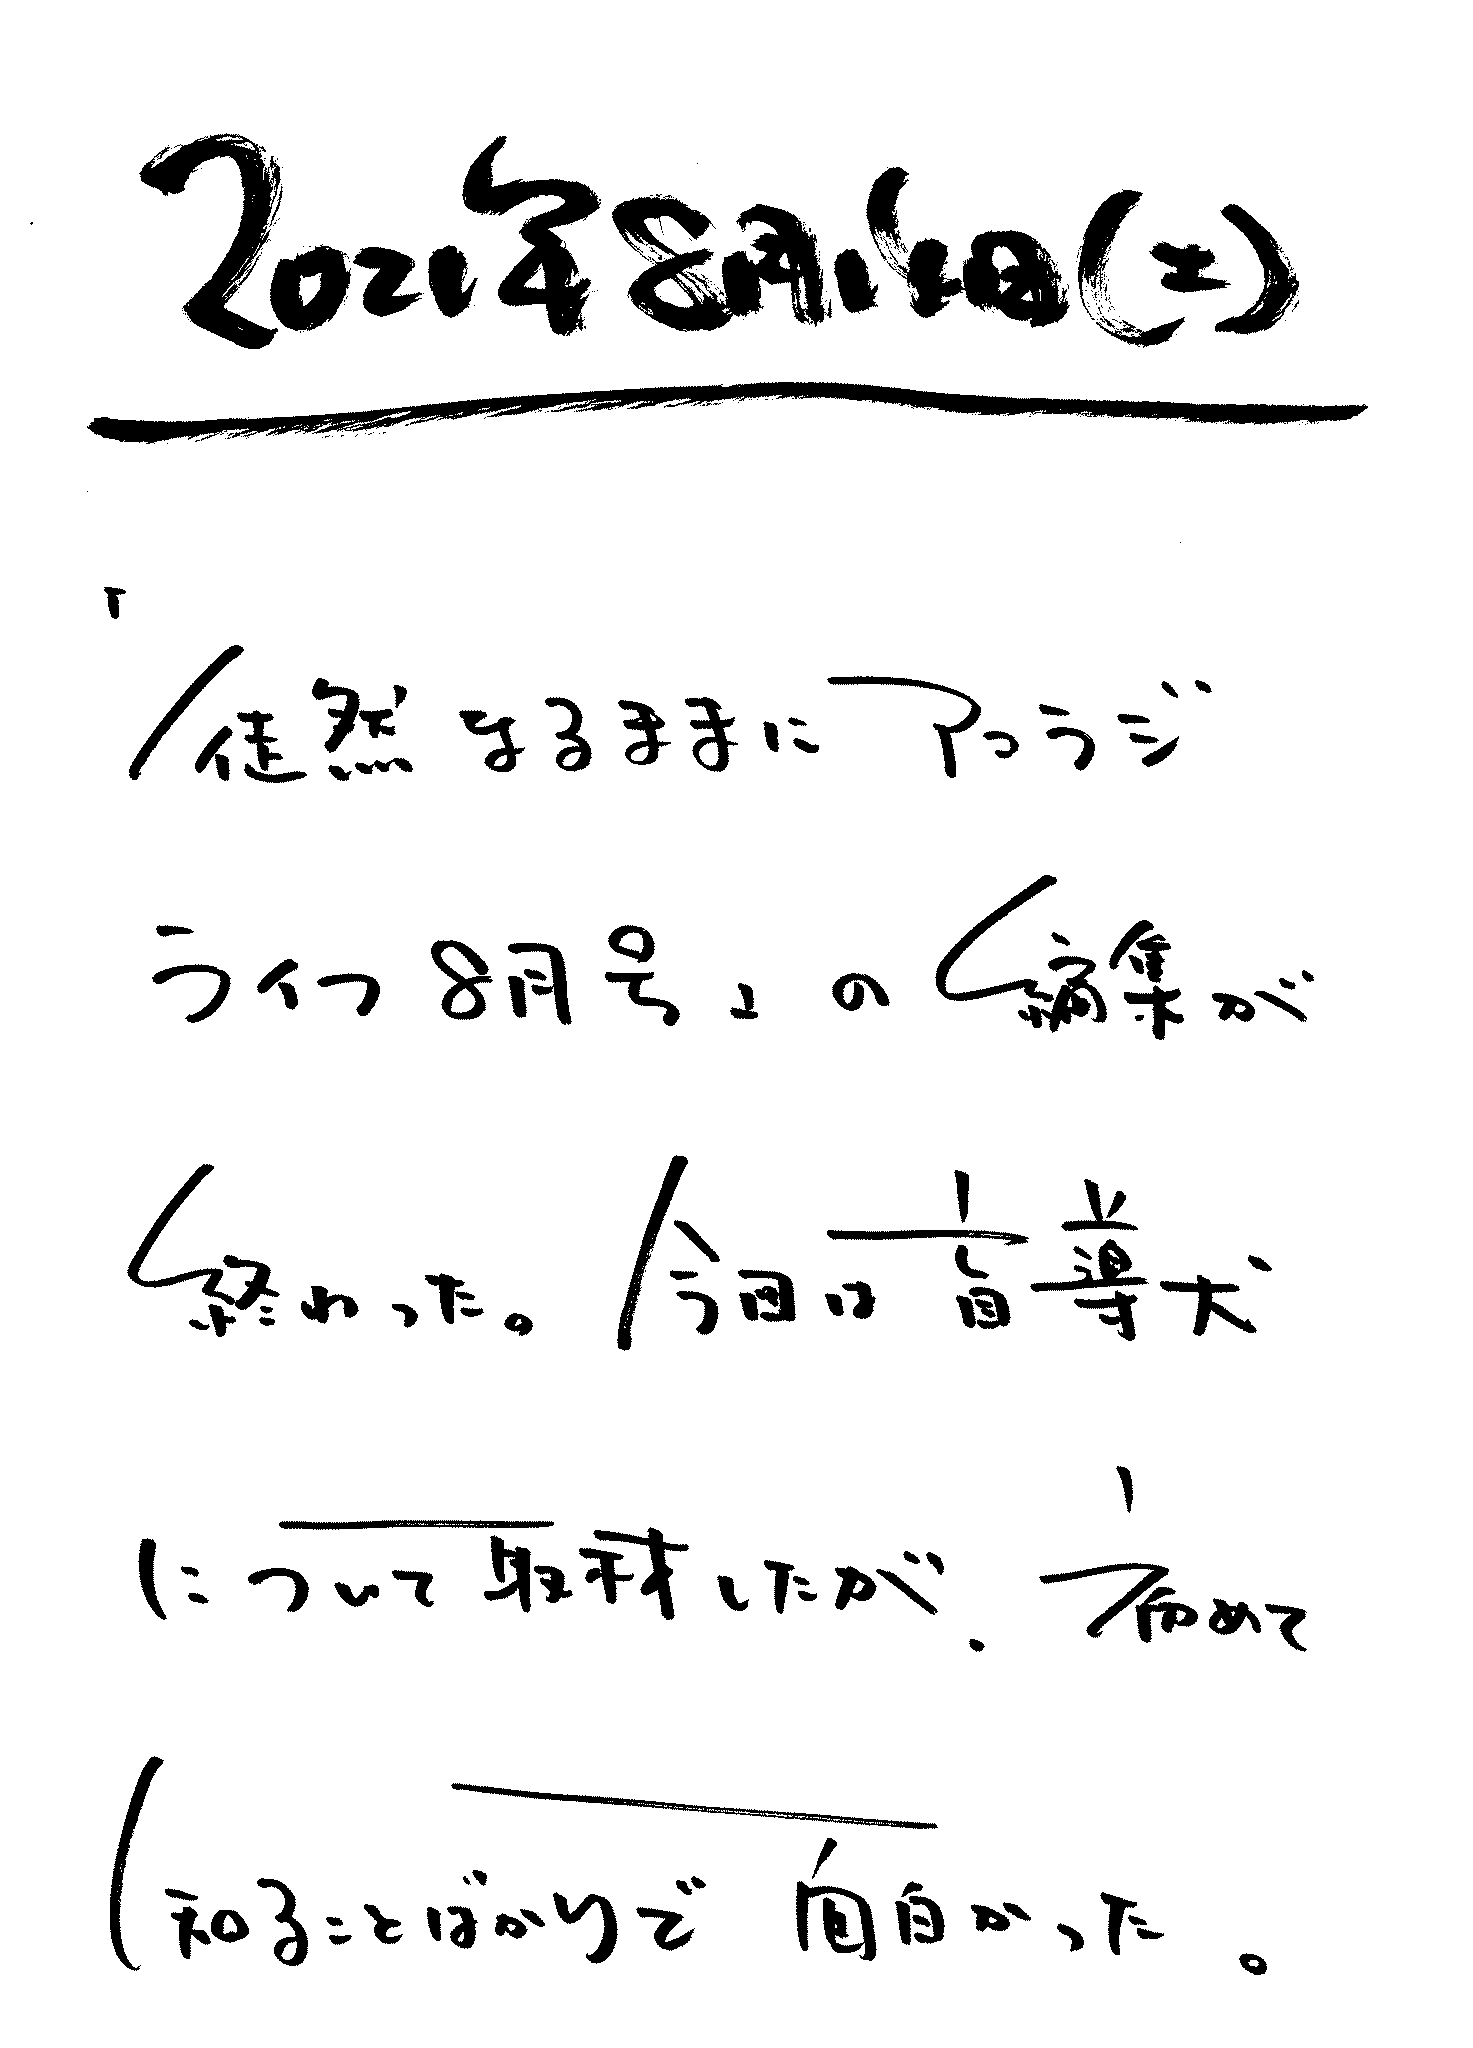 2021年8月14日(土)
「徒然なるままにアコラジ
ライフ8月号」の編集が
終わった。今回は盲導犬
について取材したが、初めて
知ることばかりで面白かった。